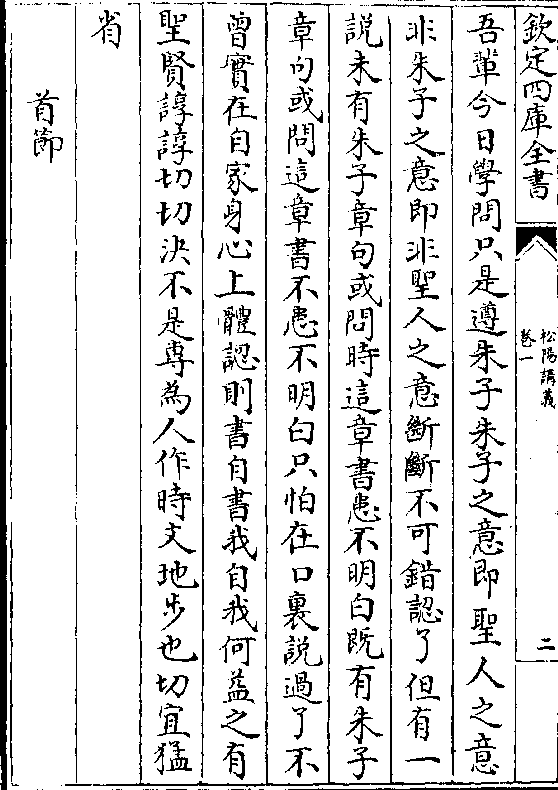 欽定四庫全書
松陽講義
卷一
二
吾輩今日學問只是遵朱子朱子之意即聖人之意
非朱子之意即非聖人之意斷斷不可錯認了但有一
說未有朱子章句或問時這章書患不明白既有朱子
章句或問這章書不患不明白只怕在口裏說過了不
曾實在自家身心上體認則書自書我自我何益之有
聖賢諄諄切切決不是專為人作時文地步也切宜猛
省
首節